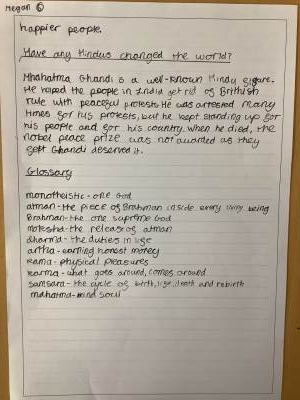 Megan 6
happier people.
Have any Hindus changed the world?
Mhahatma Ghandi is a well-known Hindu figure.
He haped the people in India get rid of Brithish
rule with peaceful protests. He was arrested many
times for his protests, but he kept standing up for
his people and for his country. When he died, the
nobel peace prize was not awarded as they
felt Ghandi deserved it.
Glossary
monotheistic - one God
atman - the piece of Brahman inside every living being
Brahman - the one supreme God
moksha - the release of atman
dharma - the duties in life
artha - earning honest money
kama - physical pleasures
karma - what goes around, comes around
samsara - the cycle of birth, life, death and rebirth
mahatma - kind soul